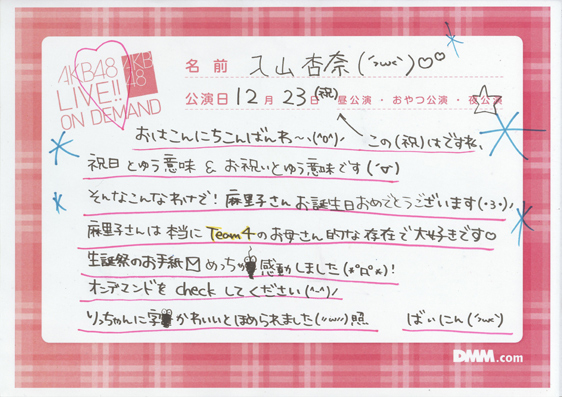 AKB48
LIVE!!
ON DEMAND
AKB
48
名前 入山杏奈(´つω`)♡♡
公演日 12月23日(祝) 昼公演・おやつ公演・夜公演
おはこんにちこんばんわ〜、(^o^)/ この(祝)はですね、
祝日とゆう意味 & お祝いとゆう意味です(´▽`)
そんなこんなわけで！麻里子さんお誕生日おめでとうございます(・3・)/
麻里子さんは本当にTeam4のお母さん的な存在で大好きです♡
生誕祭のお手紙✉めっちゃ感動しました(*ﾟДﾟ*)！
オンデマンドをcheckしてください(^-^)/
りっちゃんに字かわいいとほめられました(〃ω〃)照 ばいにん(´つω`)
DMM.com